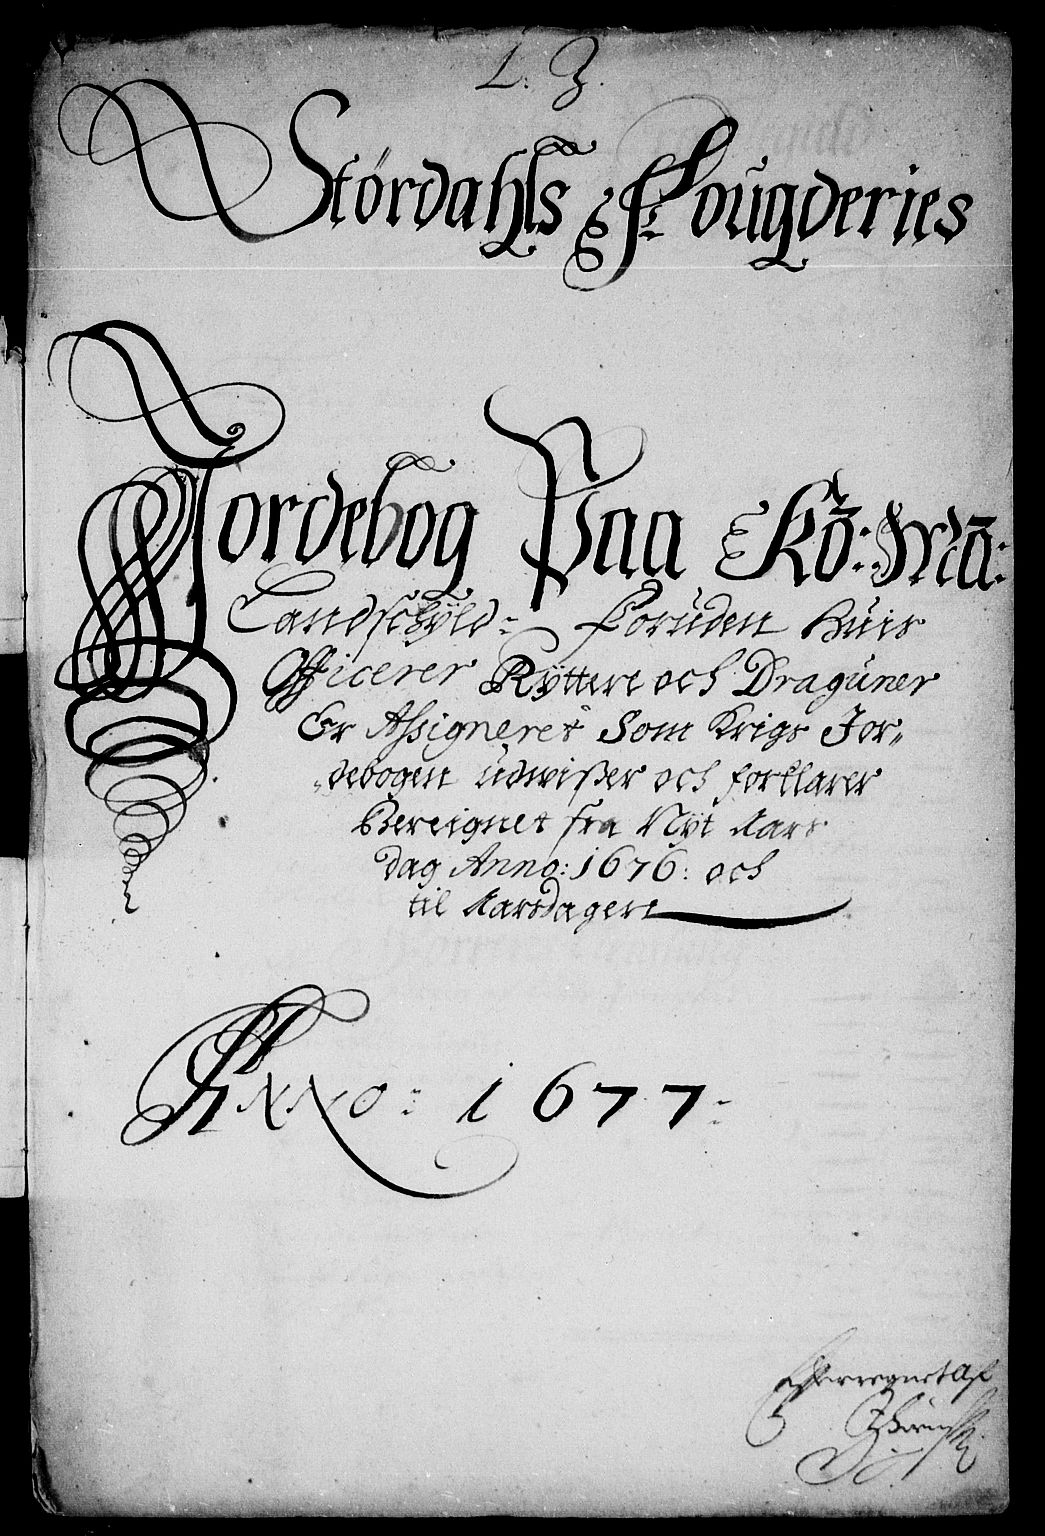 L. 3.
Stördahls Fougderies
Jordebog Paa Ko: Ma:
Landschÿld: Foruden Huis
Officerer Rÿttere och Dragůner
Er Assigneret Som Krigs Jor„
„debogen udwißer och forklarer
Bereignet fra Nÿt Aars
dag Anno: 1676: och
til Aarsdagen
Anno: 1677:
Efterregnet Af